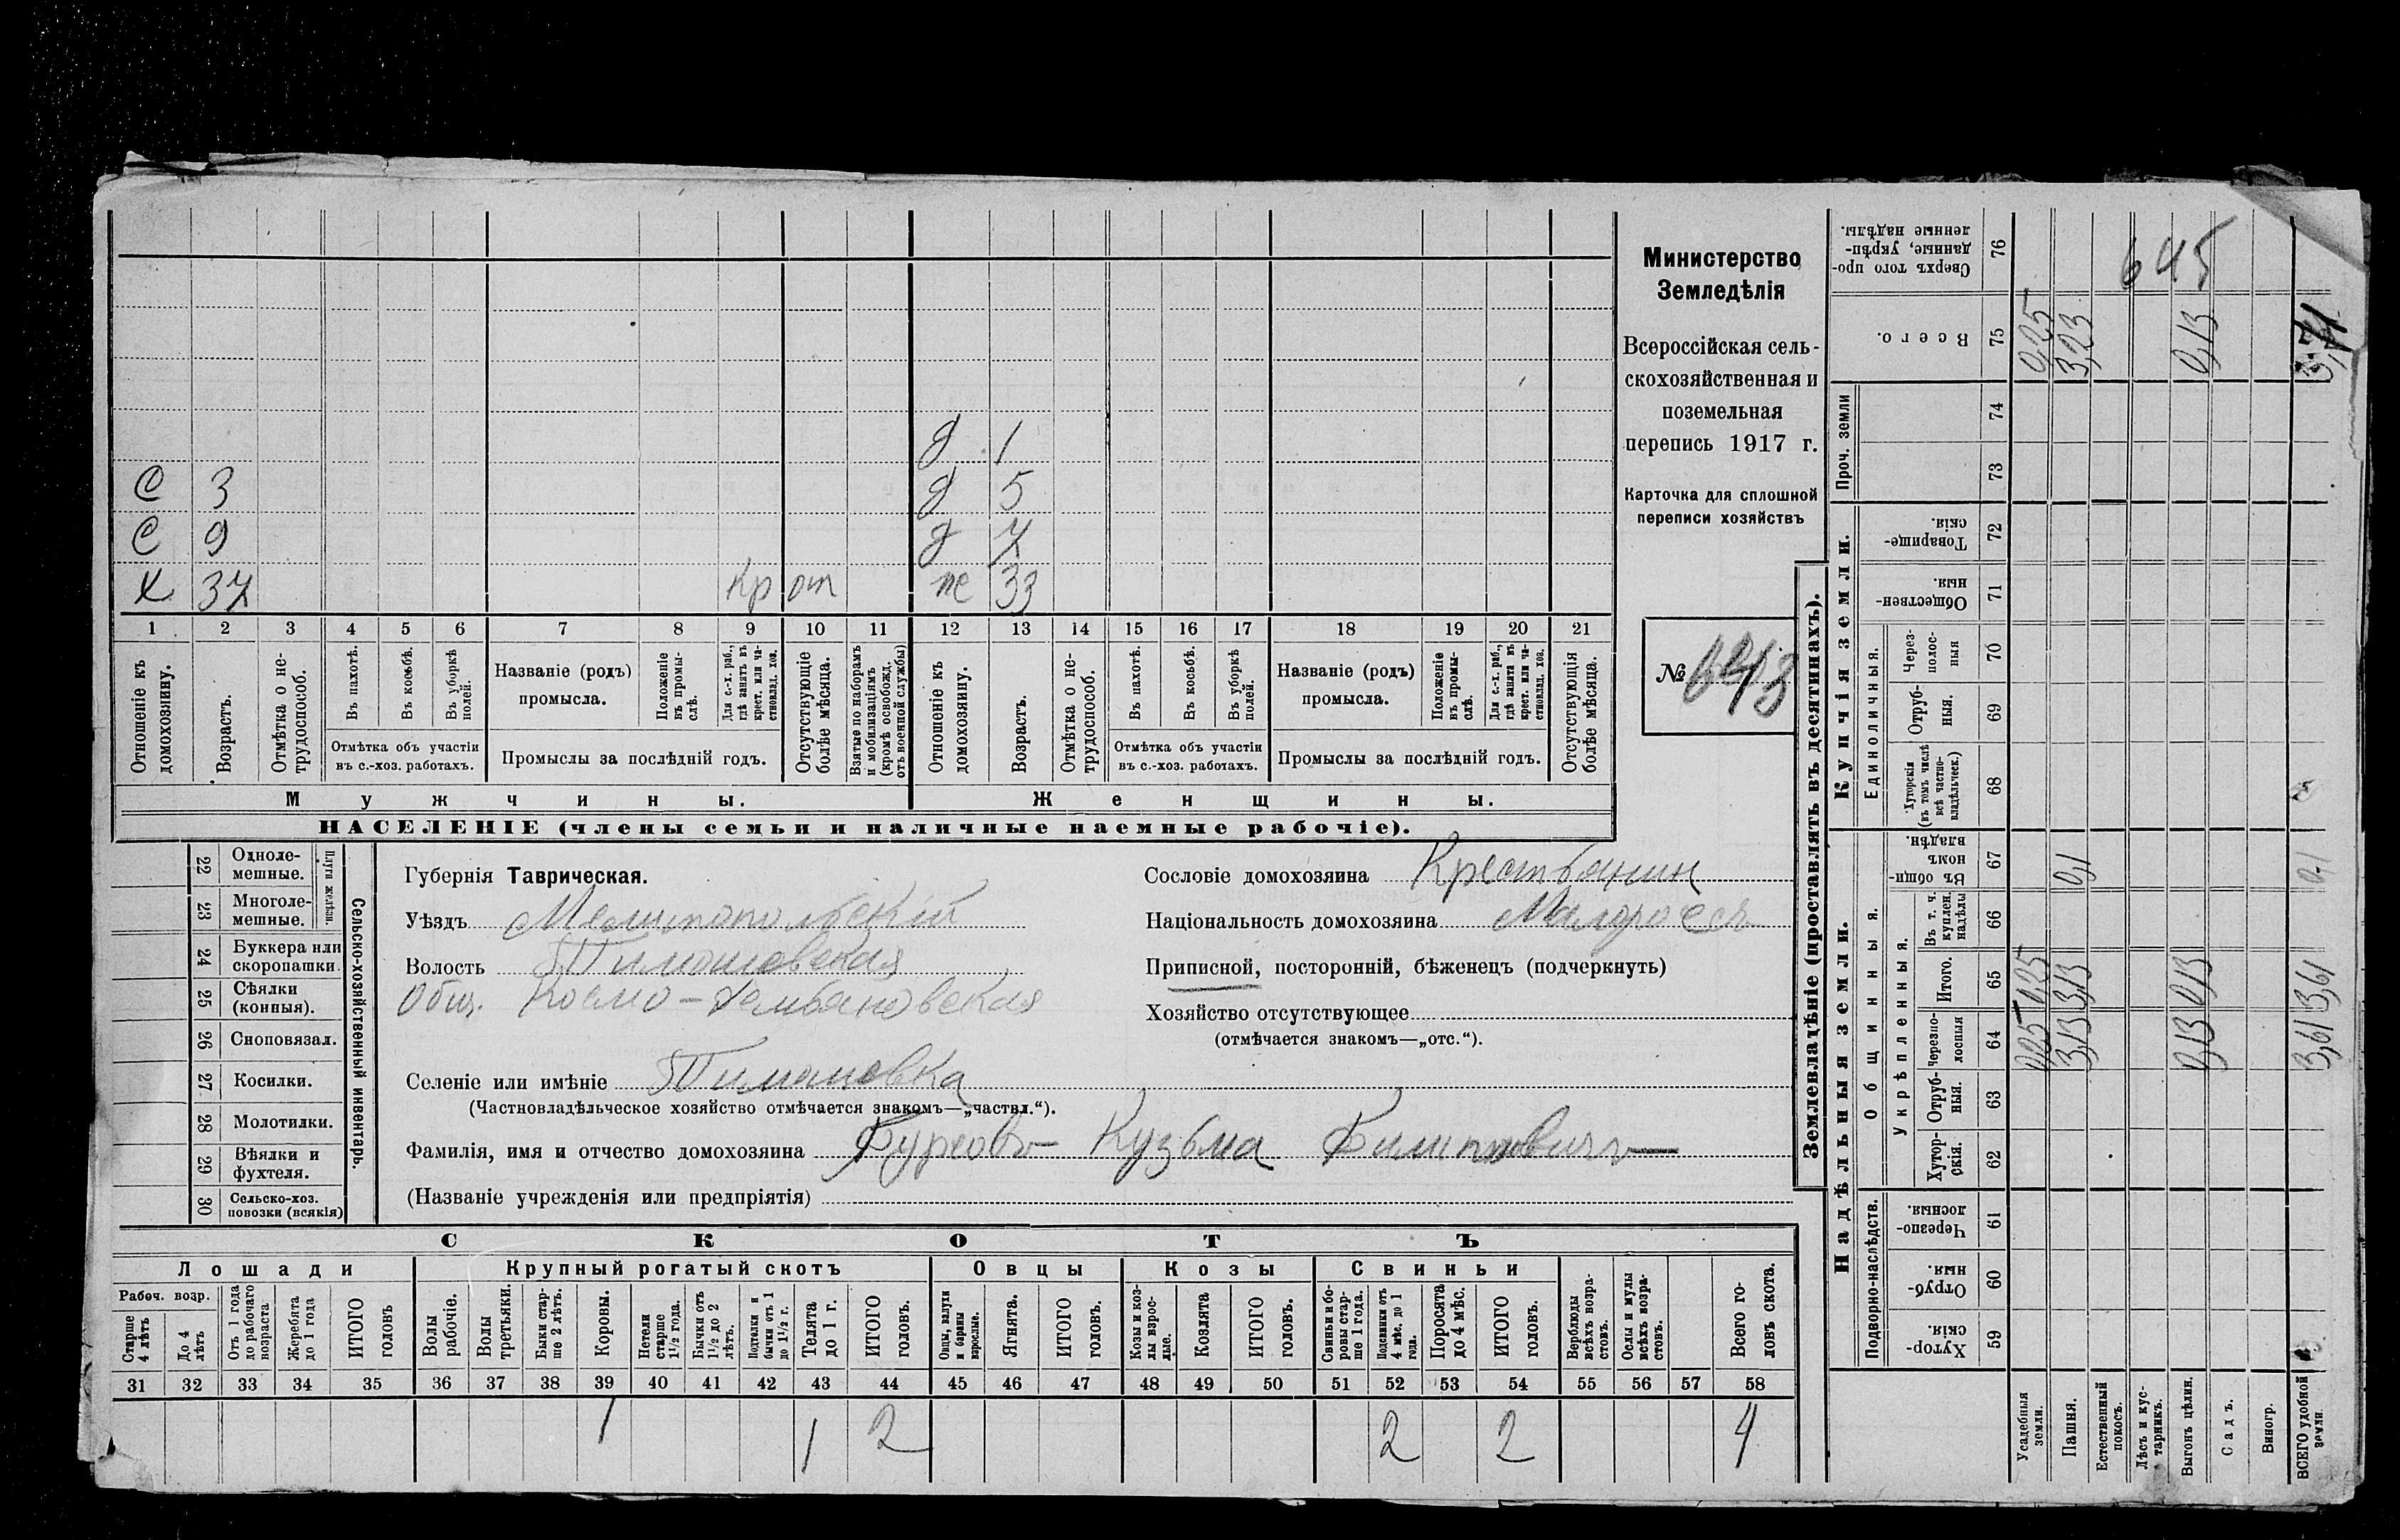 д 1
С 3 д 5
С 9 д 7
Х 37 Кр от ж 33
1 2 3 4 5 6 7 8 9 10 11 12 13 14 15 16 17 18 19 20 21
Отношеніе къ домохозяину.
Возрастъ.
Отмѣтка о не-
трудоспособ.
Въ пахотѣ.
Въ косьбѣ.
Въ уборкѣ
полей.
Отмѣтка объ участіи
въ с.-хоз. работахъ.
Названіе (родъ)
промысла.
Положеніе
въ промы-
слѣ.
Для с.-х. раб.,
гдѣ занятъ въ
крест. или ча-
стновлад. хоз.
Промыслы за послѣдній годъ.
Отсутствующіе
болѣе мѣсяца.
Взятые по наборамъ
и мобилизаціямъ
(кромѣ освобожд.
отъ военной службы)
Отношеніе къ
домохозяину.
Возрастъ.
Отмѣтка о не-
трудоспособ.
Въ пахотѣ.
Въ косьбѣ.
Въ уборкѣ
полей.
Отмѣтка объ участіи
въ с.-хоз. работахъ.
Названіе (родъ)
промысла.
Положеніе
въ промы-
слѣ.
Для с.-х. раб.,
гдѣ занятъ въ
крест. или ча-
стновлад. хоз.
Промыслы за послѣдній годъ.
Отсутствующія
болѣе мѣсяца.
Мужчины.
Женщины.
НАСЕЛЕНІЕ (члены семьи и наличные наемные рабочіе).
Министерство
Земледѣлія
Всероссійская сель-
скохозяйственная и
поземельная
перепись 1917 г.
Карточка для сплошной
переписи хозяйствъ
№ 643
22 Одноле-
мешные.
23 Многоле-
мешные.
Плуги желѣзн.
24 Буккера или
скоропашки.
25 Сѣялки
(конныя).
26 Сноповязал.
27 Косилки.
28 Молотилки.
29 Вѣялки и
фухтеля.
30 Сельско-хоз.
повозки (всякія)
Сельско-хозяйственный инвентарь.
Губернія Таврическая.
Уѣздъ Мелитопольскій
Волость Тимошовская
Общ. Космо-Демьяновская
Селеніе или имѣніе Тимашовка
(Частновладѣльческое хозяйство отмѣчается знакомъ—„частвл.“).
Фамилія, имя и отчество домохозяина Кузьма Филипповичъ
(Названіе учрежденія или предпріятія)
Сословіе домохозяина Крестьянин
Національность домохозяина Малороссъ
Приписной, посторонній, бѣженецъ (подчеркнуть)
Хозяйство отсутствующее
(отмѣчается знакомъ—„отс.“).
СКОТЪ
Лошади
Крупный рогатый скотъ
Овцы
Козы
Свиньи
Рабоч. возр.
Старше
4 лѣтъ
До 4
лѣтъ
Отъ 1 года
до рабочаго
возраста
Жеребята
до 1 года
ИТОГО
головъ
Волы
рабочіе.
Волы
третьяки.
Быки стар-
ше 2 лѣтъ.
Коровы.
Нетели
старше
1½ года.
Бычки отъ
1½ до 2
лѣтъ.
Подтелки и
бычки отъ 1
до 1½ г.
Телята
до 1 г.
ИТОГО
головъ.
Овцы, валухи
и бараны
взрослые.
Ягнята.
ИТОГО
головъ.
Козы и коз-
лы взрос-
лые.
Козлята
ИТОГО
головъ.
Свиньи и бо-
ровы стар-
ше 1 года.
Подсвинки отъ
4 мѣс. до 1
года.
Поросята
до 4 мѣс.
ИТОГО
головъ.
Верблюды
всѣхъ возра-
стовъ.
Ослы и мулы
всѣхъ возра-
стовъ.
Всего го-
ловъ скота.
31 32 33 34 35 36 37 38 39 40 41 42 43 44 45 46 47 48 49 50 51 52 53 54 55 56 57 58
1 1 2 2 2 4
Землевладѣніе (проставлять въ десятинахъ).
Надѣльныя земли.
Купчія земли.
Проч. земли
Подворно-наслѣдств.
Общинныя.
Укрѣпленныя.
Единоличныя.
Сверхъ того про-
данные, укрѣп-
ленные надѣлы.
76
645
Всего.
75 0,25 3,23 0,13 3,71
74
73
Товарище-
скія.
72
Обществен-
ныя.
71
Через-
полос-
ныя
70
Отруб-
ныя.
69
Хуторскія
(въ томъ числѣ
всѣ частно-
владѣльческ.)
68
Въ общи-
номъ
владѣн.
67 0,1 0,1
Въ т. ч.
куплен.
надѣлы
66
Итого.
65 0,25 3,13 0,13 3,61
Черезпо-
лосныя
64 0,25 3,13 0,13 3,61
Отруб-
ныя.
63
Хутор-
скія.
62
Черезпо-
лосныя.
61
Отруб-
ныя.
60
Хутор-
скія.
59
Усадебныя
земли.
Пашня.
Естественный
покосъ.
Лѣсъ и кус-
тарникъ.
Выгонъ цѣлин.
Садъ.
Виногр.
ВСЕГО удобной
земли